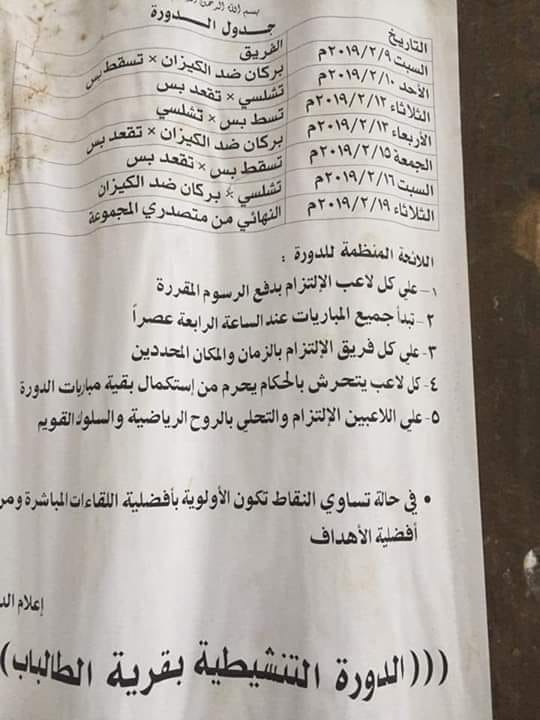 بسم الله الرحمن
جدول الدورة
التاريخ الفريق
السبت ٢٠١٩/٢/٩م بركان ضد الكيزان × تسقط بس
الأحد ٢٠١٩/٢/١٠م تشلسي × تقعد بس
الثلاثاء ٢٠١٩/٢/١٢م تسط بس × تشلسي
الأربعاء ٢٠١٩/٢/١٣م بركان ضد الكيزان × تقعد بس
الجمعة ٢٠١٩/٢/١٥م تسقط بس × تقعد بس
السبت ٢٠١٩/٢/١٦م تشلسي × بركان ضد الكيزان
الثلاثاء ٢٠١٩/٢/١٩م النهائي من متصدري المجموعة
اللائحة المنظمة للدورة :
١- علي كل لاعب الإلتزام بدفع الرسوم المقررة
٢- تبدأ جميع المباريات عند الساعة الرابعة عصراً
٣- علي كل فريق الإلتزام بالزمان والمكان المحددين
٤- كل لاعب يتحرش بالحكام يحرم من إستكمال بقية مباريات الدورة
٥- علي اللاعبين الإلتزام والتحلي بالروح الرياضية والسلوك القويم
• في حالة تساوي النقاط تكون الأولوية بأفضلية اللقاءات المباشرة ومن
أفضلية الأهداف
إعلام
(((الدورة التنشيطية بقرية الطالباب)